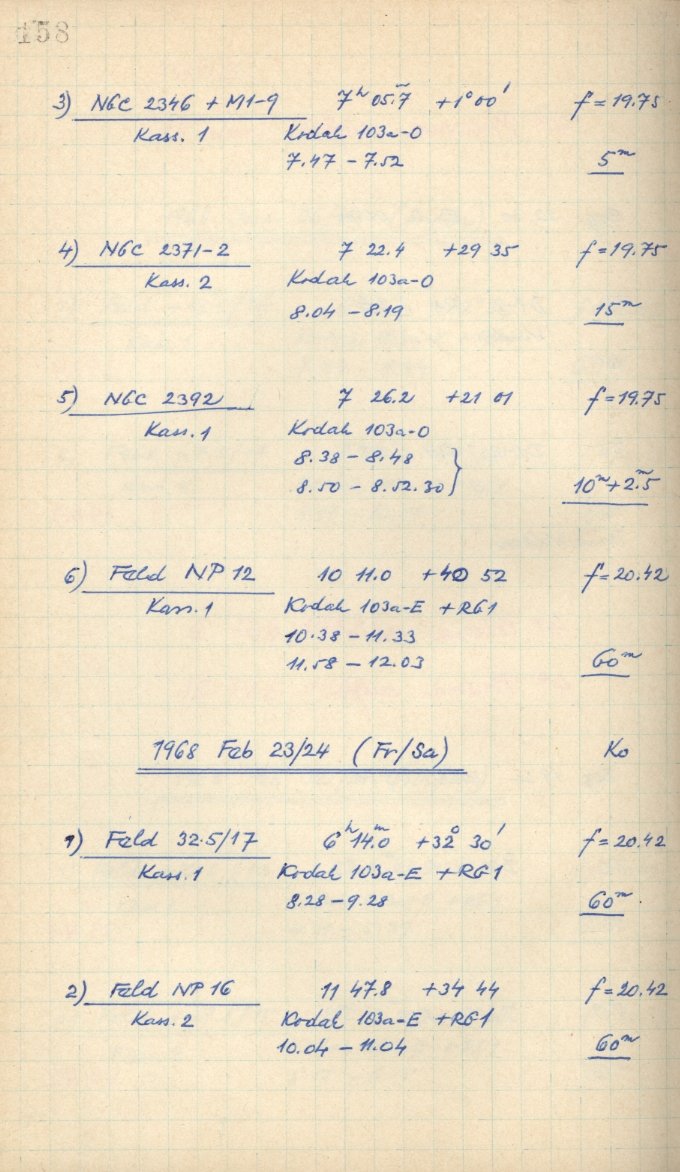 158
3) NGC 2346 + M1-9 7ʰ 05.ᵐ7 +1° 00′ f = 19.75
Kass. 1 Kodak 103a-O
7.47 – 7.52 5ᵐ
4) NGC 2371-2 7 22.4 +29 35 f = 19.75
Kass. 2 Kodak 103a-O
8.04 – 8.19 15ᵐ
5) NGC 2392 7 26.2 +21 01 f = 19.75
Kass. 1 Kodak 103a-O
8.38 – 8.48
8.50 – 8.52.30 } 10ᵐ + 2.ᵐ5
6) Feld NP 12 10 11.0 +40 52 f = 20.42
Kass. 1 Kodak 103a-E + RG1
10.38 – 11.33
11.58 – 12.03 60ᵐ
1968 Feb 23/24 (Fr/Sa) Ko
1) Feld 32.5/17 6ʰ 14.ᵐ0 +32° 30′ f = 20.42
Kass. 1 Kodak 103a-E + RG1
8.28 – 9.28 60ᵐ
2) Feld NP 16 11 47.8 +34 44 f = 20.42
Kass. 2 Kodak 103a-E + RG1
10.04 – 11.04 60ᵐ